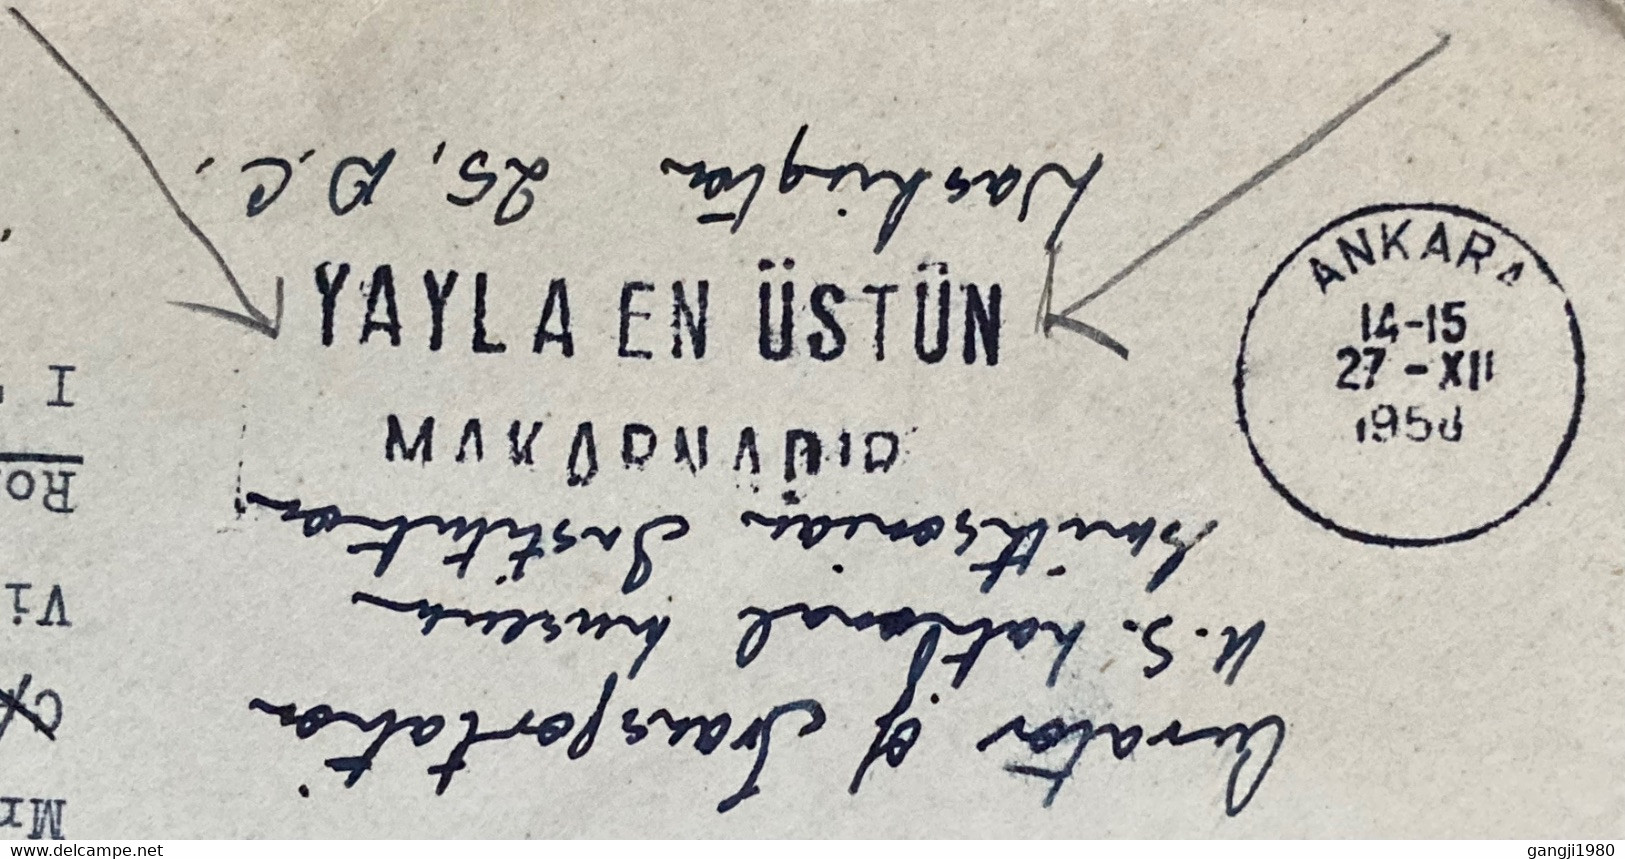 YAYLA EN ÜSTÜN
MAKARNADIR
ANKARA
14-15
27-XII
1958
Curator of Transportation
U.S. National Museum
Smithsonian Institution
Washington 25, D.C.
Mr
Vi
Ro
I
delcampe.net
gangji1980